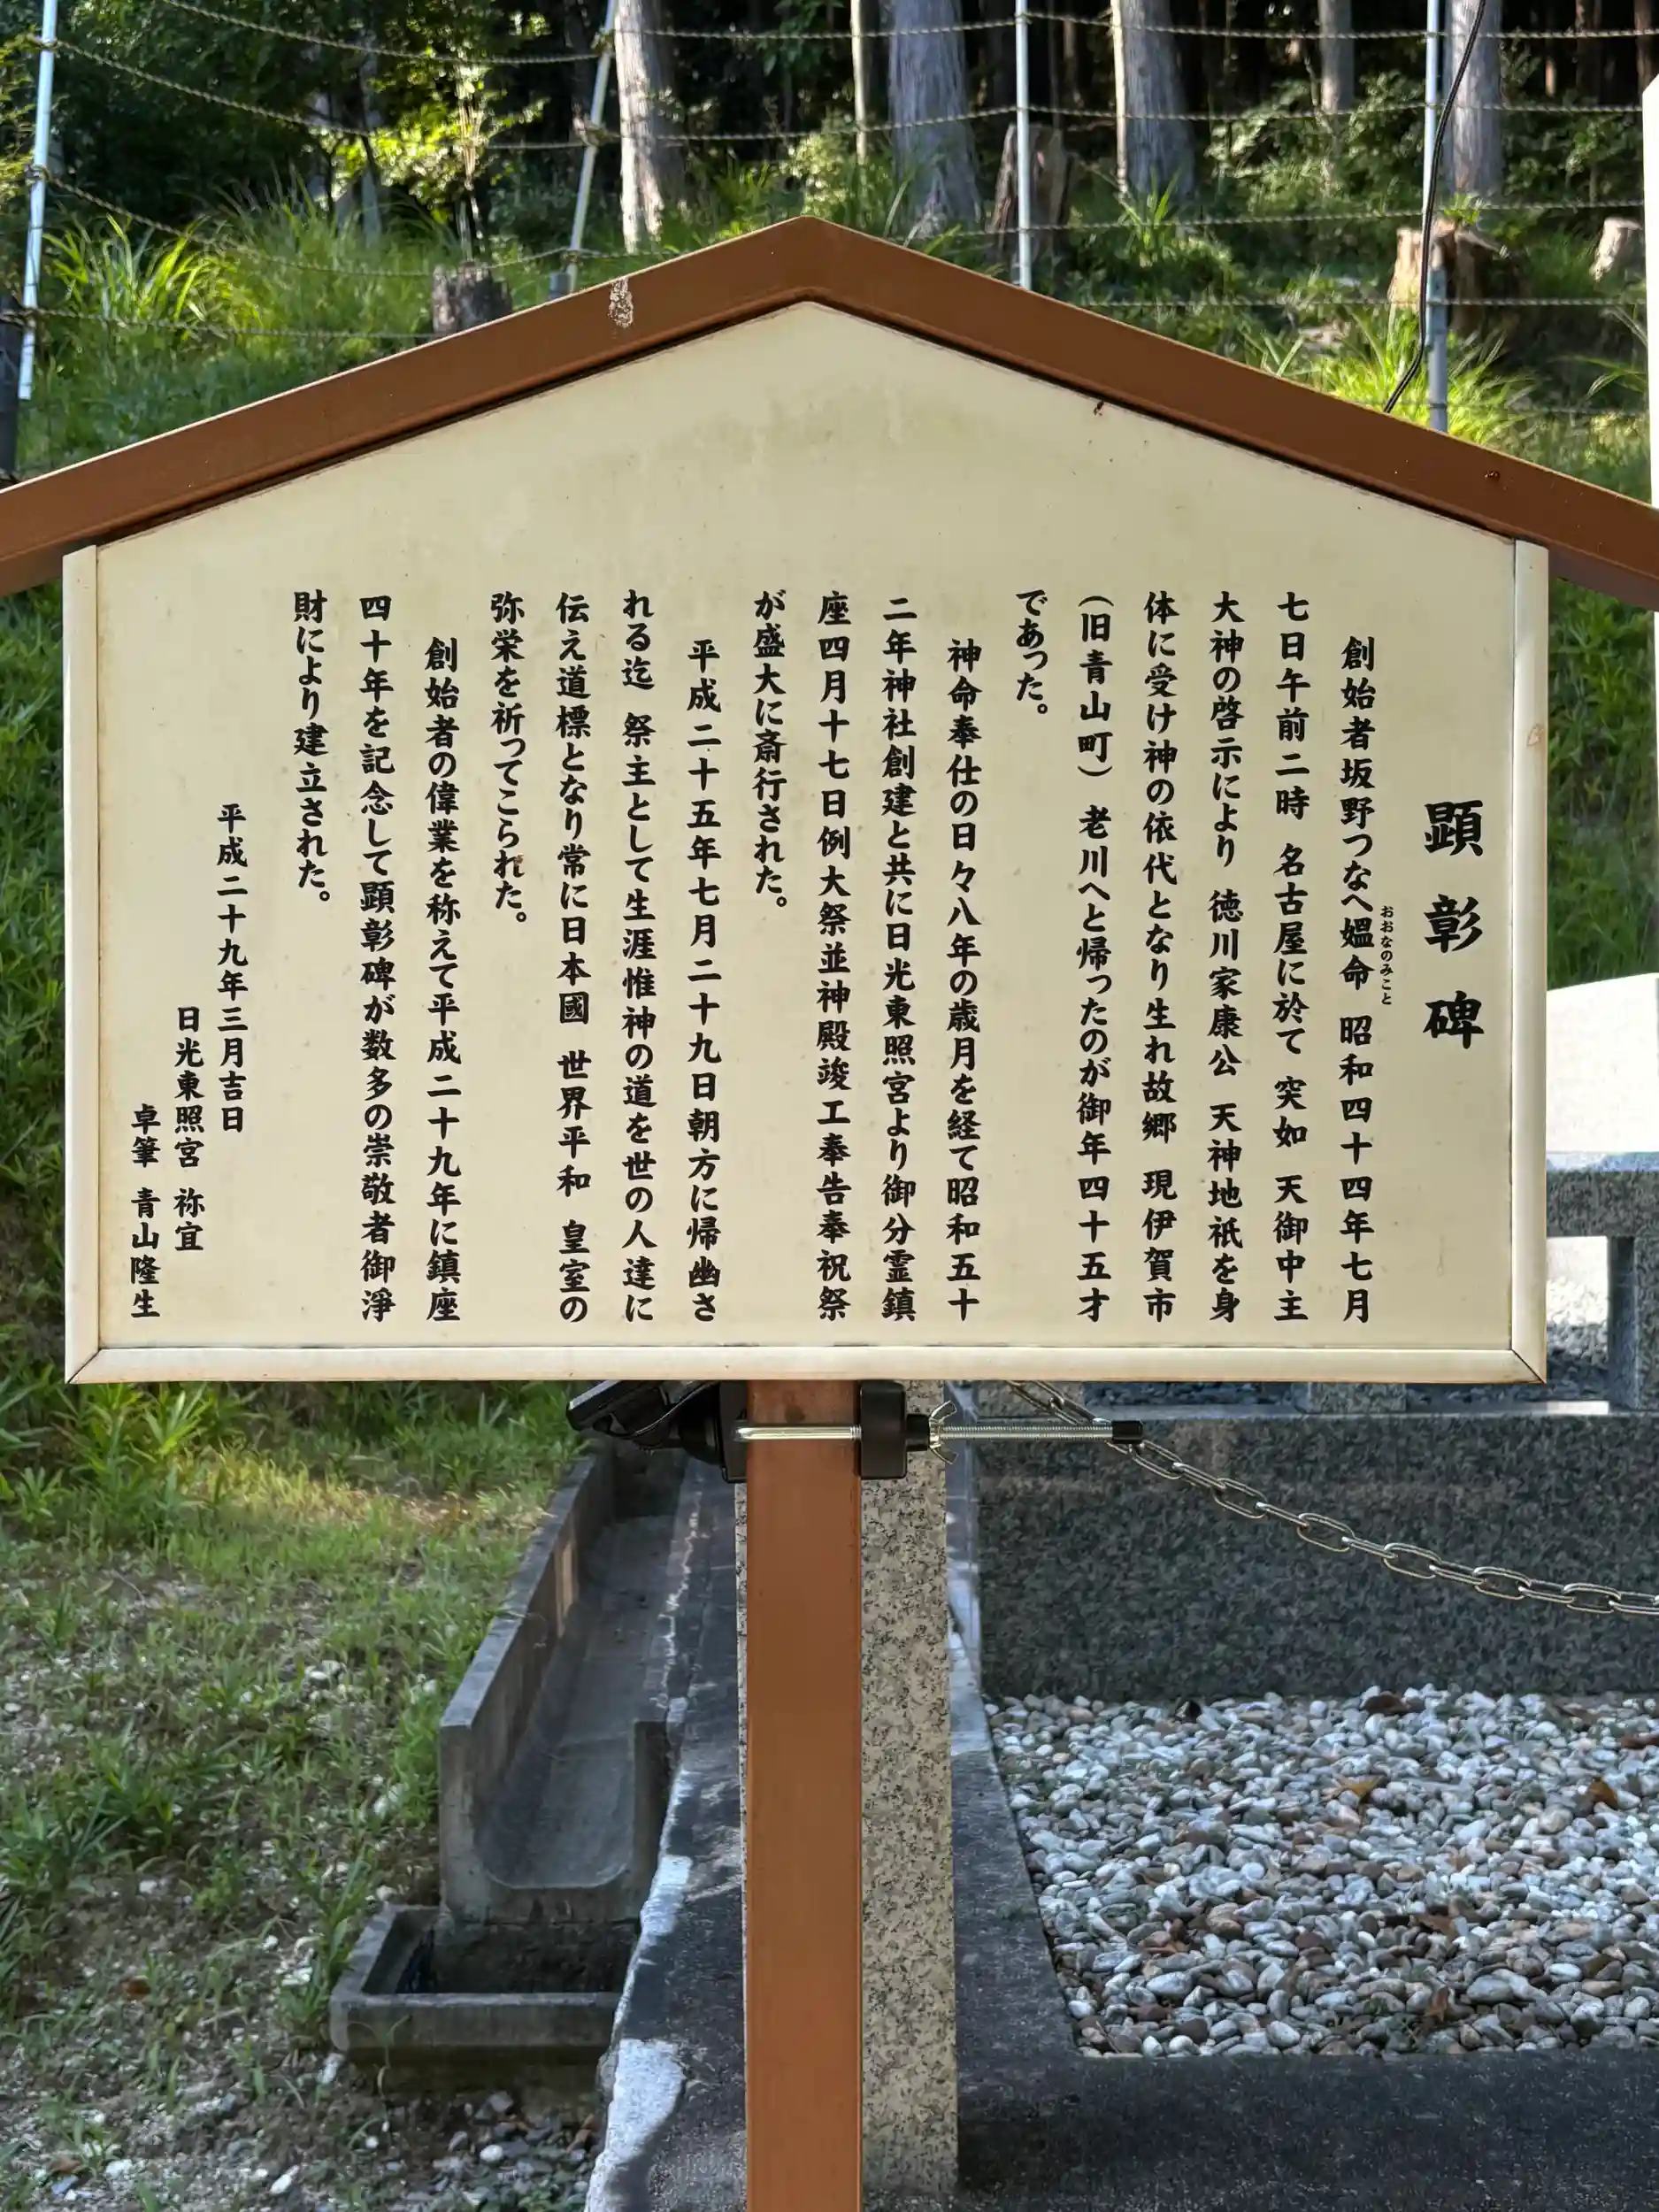 顕彰碑
創始者坂野つなへ媼命 昭和四十四年七月
おおなのみこと
七日午前二時 名古屋に於て 突如 天御中主
大神の啓示により 徳川家康公 天神地祇を身
体に受け神の依代となり生れ故郷 現伊賀市
(旧青山町) 老川へと帰ったのが御年四十五才
であった。
神命奉仕の日々八年の歳月を経て昭和五十
二年神社創建と共に日光東照宮より御分霊鎮
座四月十七日例大祭並神殿竣工奉告奉祝祭
が盛大に斎行された。
平成二十五年七月二十九日朝方に帰幽さ
れる迄 祭主として生涯惟神の道を世の人達に
伝え道標となり常に日本國 世界平和 皇室の
弥栄を祈ってこられた。
創始者の偉業を称えて平成二十九年に鎮座
四十年を記念して顕彰碑が数多の崇敬者御淨
財により建立された。
平成二十九年三月吉日
日光東照宮 祢宜
卓筆 青山隆生